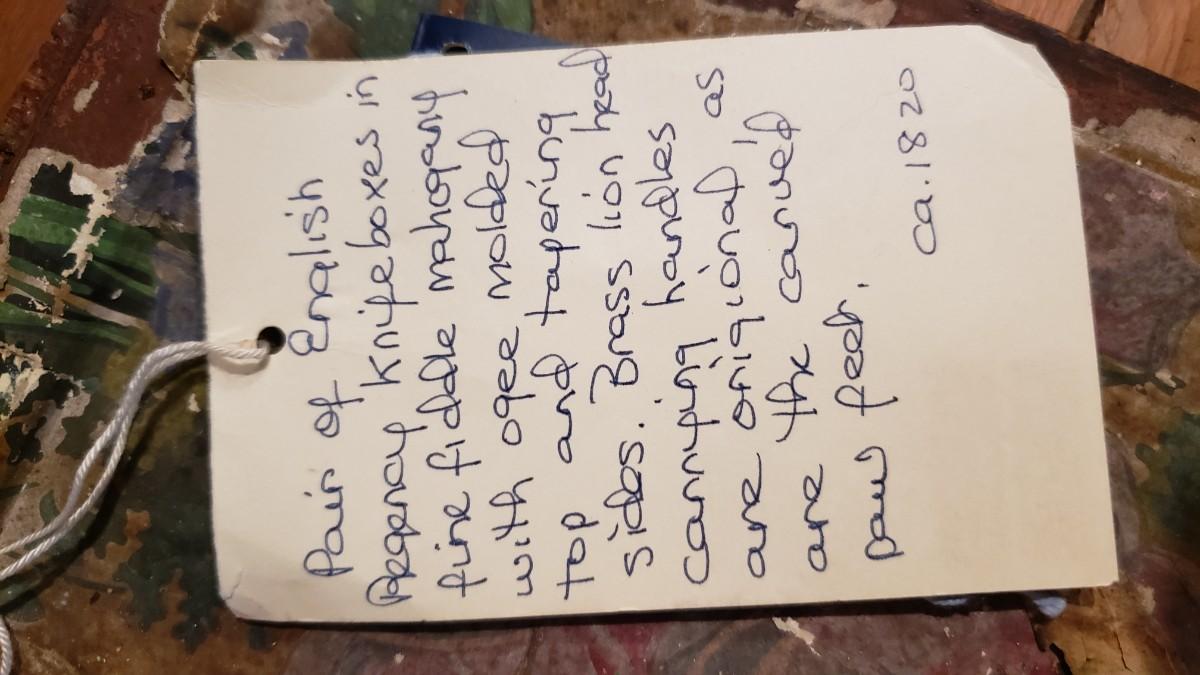 Pair of English
Regency Knifeboxes in
fine fiddle mahogany
with ogee molded
top and tapering
sides. Brass lion head
carrying handles
are origional, as
are the carved
paw feet.
ca. 1820